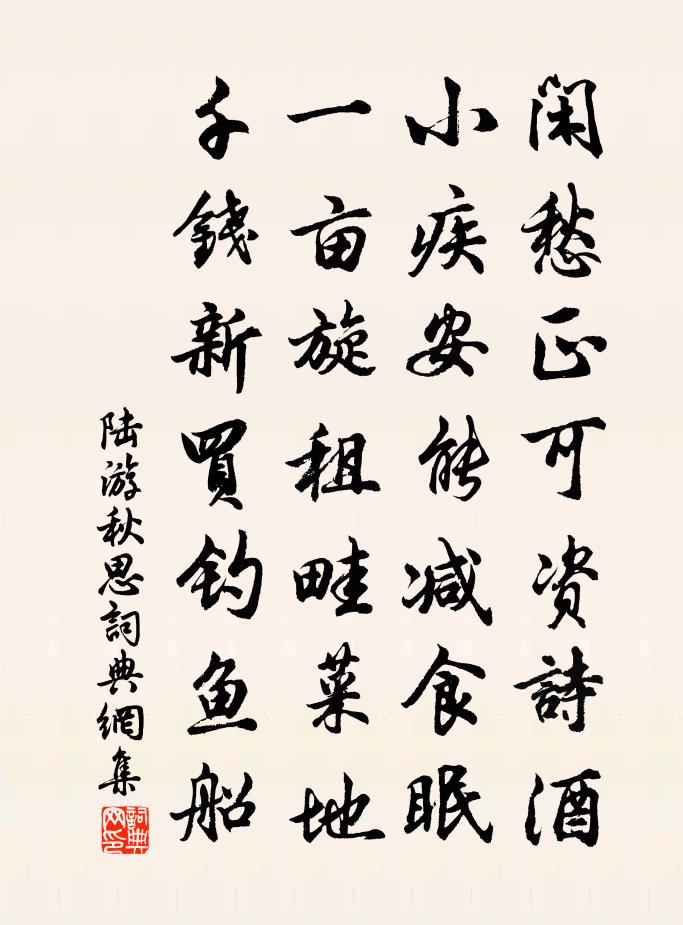 闲愁正可资詩酒
小疾安能减食眠
一亩旋租畦菜地
千錢新買钓鱼船
陆游秋思詞典網集
詞典网印